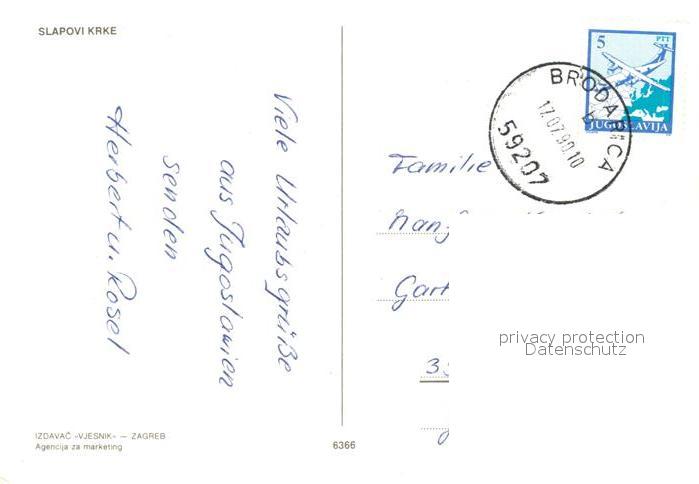 SLAPOVI KRKE
Viele Urlaubsgrüße
aus Jugoslawien
senden
Herbert u. Rosel
IZDAVAČ »VJESNIK« — ZAGREB
Agencija za marketing
6366
5 PTT
JUGOSLAVIJA
BRODARICA
17.07.90.10
59207
Familie
privacy protection
Datenschutz